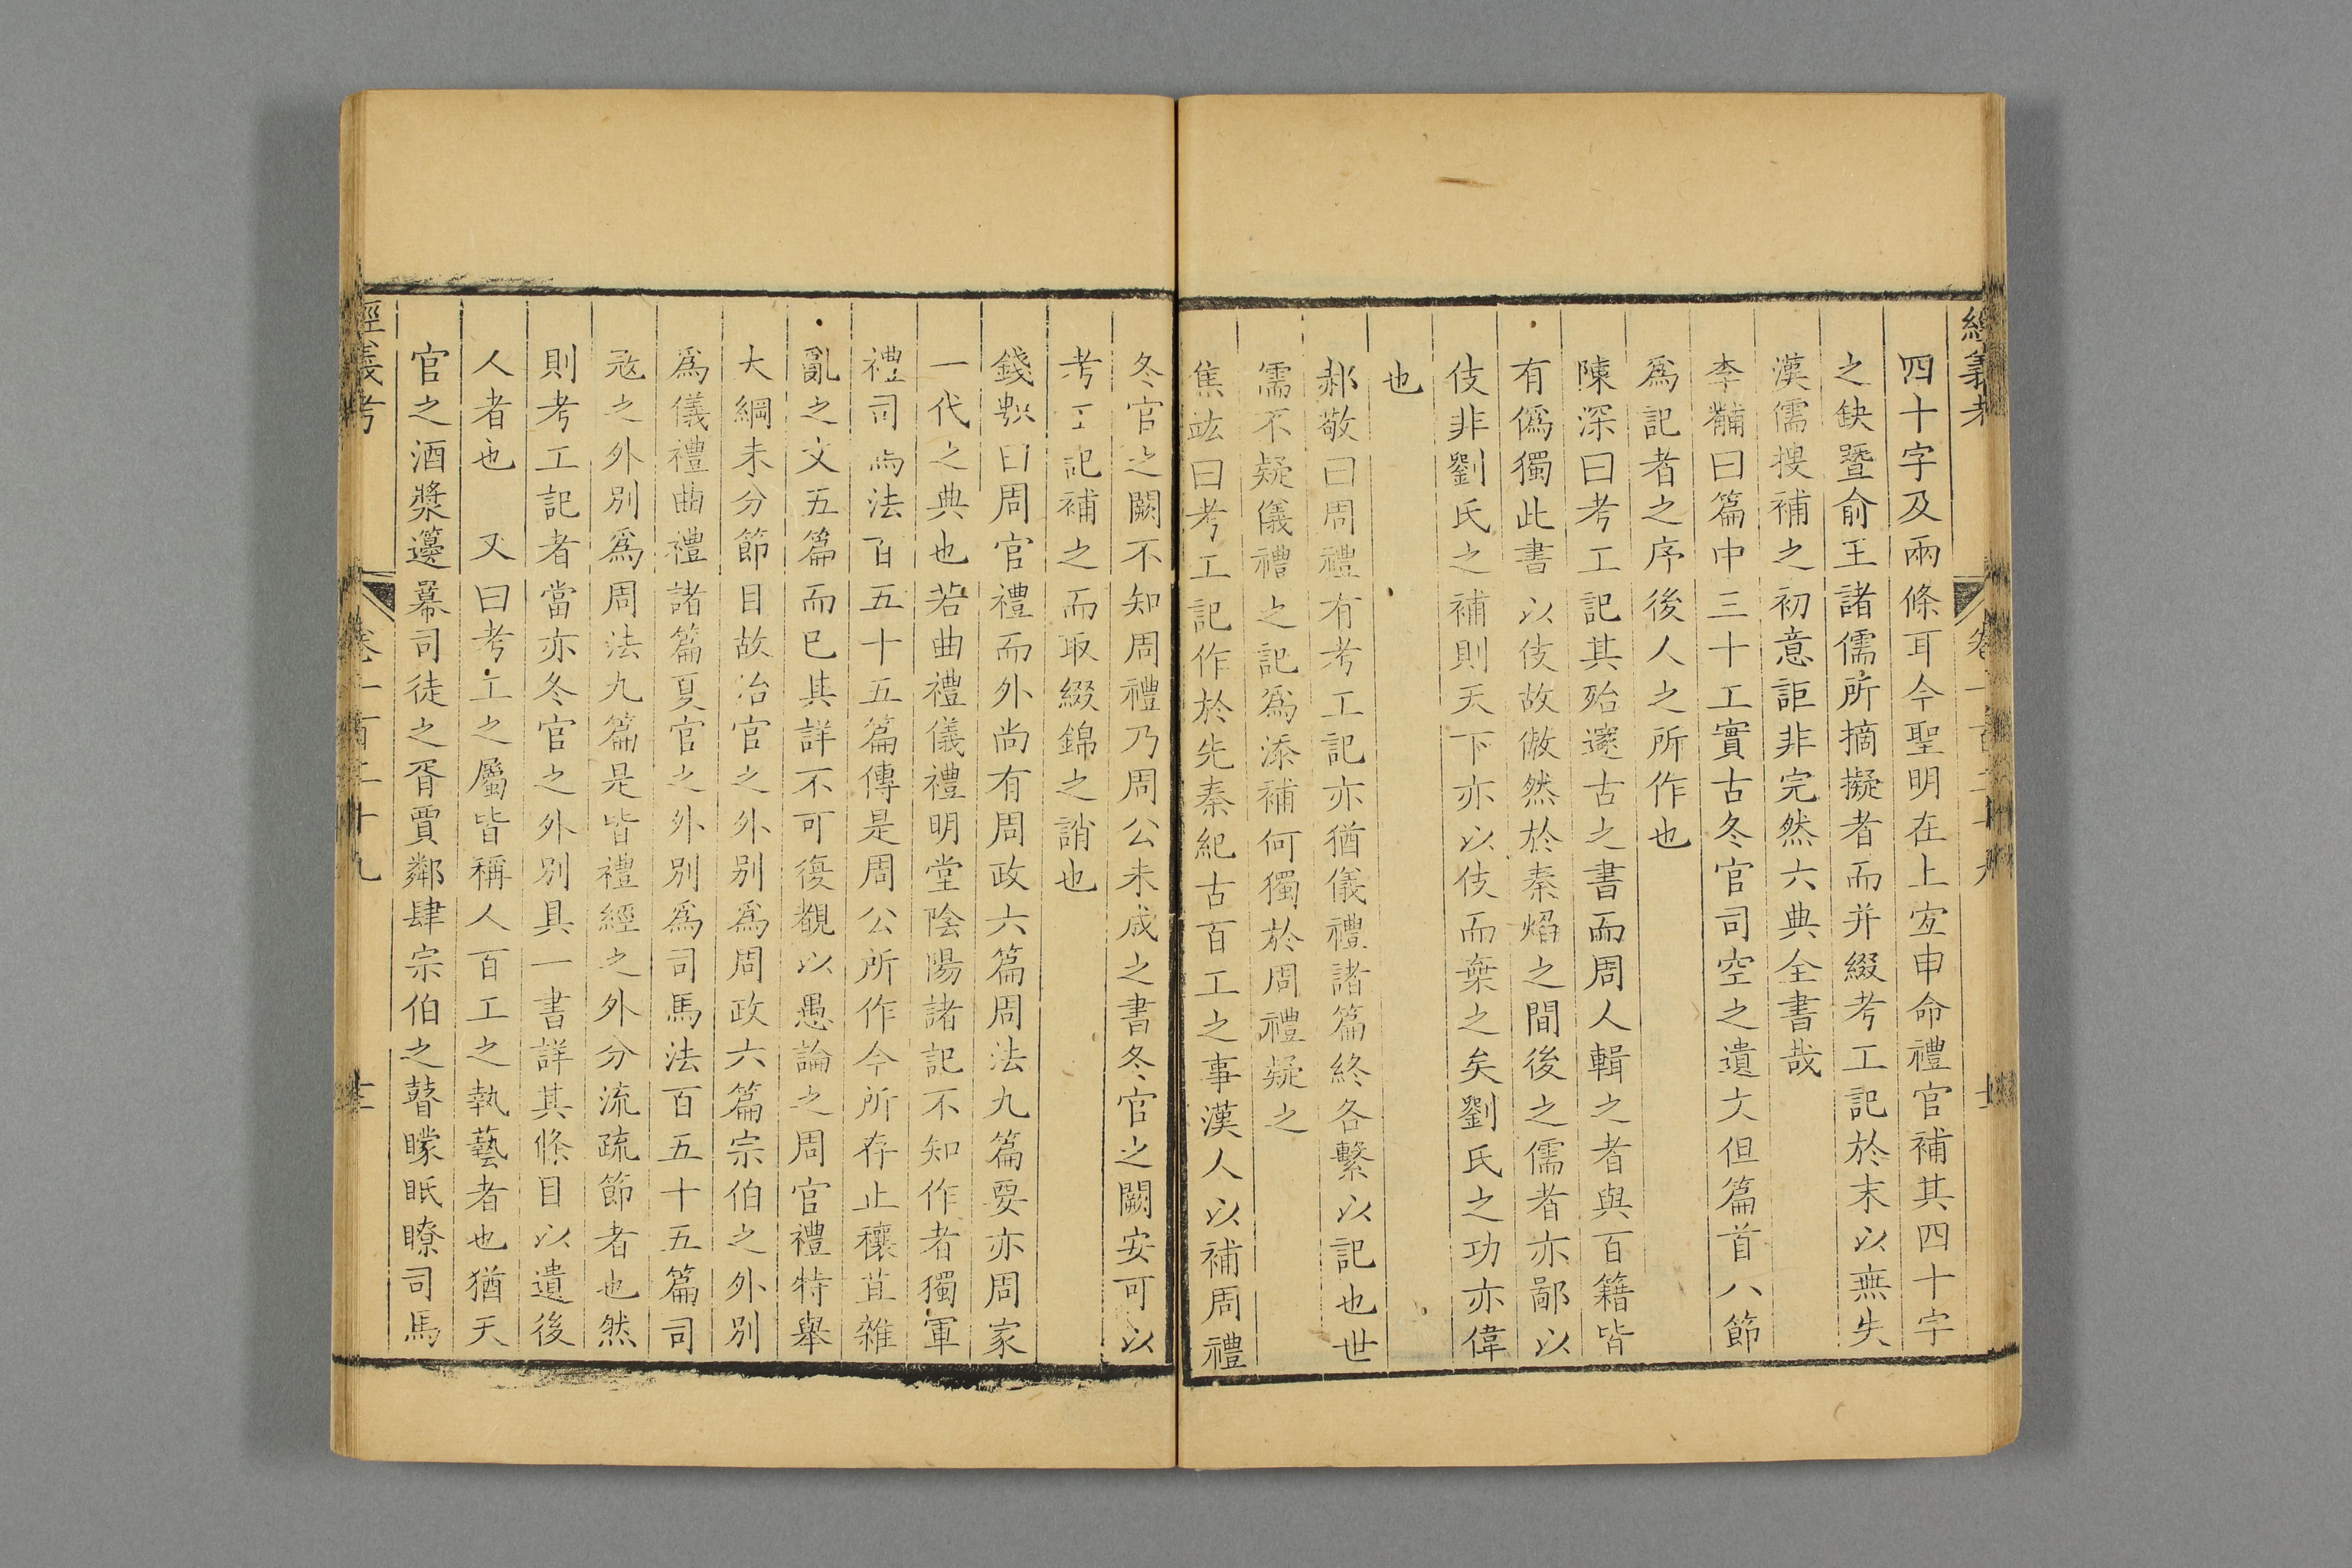 經義考 卷一百二十九
四十字及兩條耳今聖明在上宐申命禮官補其四十字
之缺暨俞王諸儒所摘擬者而并綴考工記於末以無失
漢儒搜補之初意詎非完然六典全書哉
李黼曰篇中三十工實古冬官司空之遺文但篇首八節
爲記者之序後人之所作也
陳深曰考工記其殆邃古之書而周人輯之者與百籍皆
有僞獨此書以伎故儌然於秦焰之間後之儒者亦鄙以
伎非劉氏之補則天下亦以伎而棄之矣劉氏之功亦偉
也
郝敬曰周禮有考工記亦猶儀禮諸篇終各繫以記也世
儒不疑儀禮之記爲添補何獨於周禮疑之
焦竑曰考工記作於先秦紀古百工之事漢人以補周禮
冬官之闕不知周禮乃周公未成之書冬官之闕安可以
考工記補之而取綴錦之誚也
錢𤣱曰周官禮而外尚有周政六篇周法九篇要亦周家
一代之典也若曲禮儀禮明堂陰陽諸記不知作者獨軍
禮司馬法百五十五篇傳是周公所作今所存止穰苴雜
亂之文五篇而已其詳不可復覩以愚論之周官禮特舉
大綱未分節目故冶官之外別爲周政六篇宗伯之外別
爲儀禮曲禮諸篇夏官之外別爲司馬法百五十五篇司
宼之外別爲周法九篇是皆禮經之外分流疏節者也然
則考工記者當亦冬官之外別具一書詳其條目以遺後
人者也 又曰考工之屬皆稱人百工之執藝者也猶天
官之酒漿籩幕司徒之胥賈鄰肆宗伯之瞽矇眡瞭司馬
經義考 卷一百二十九